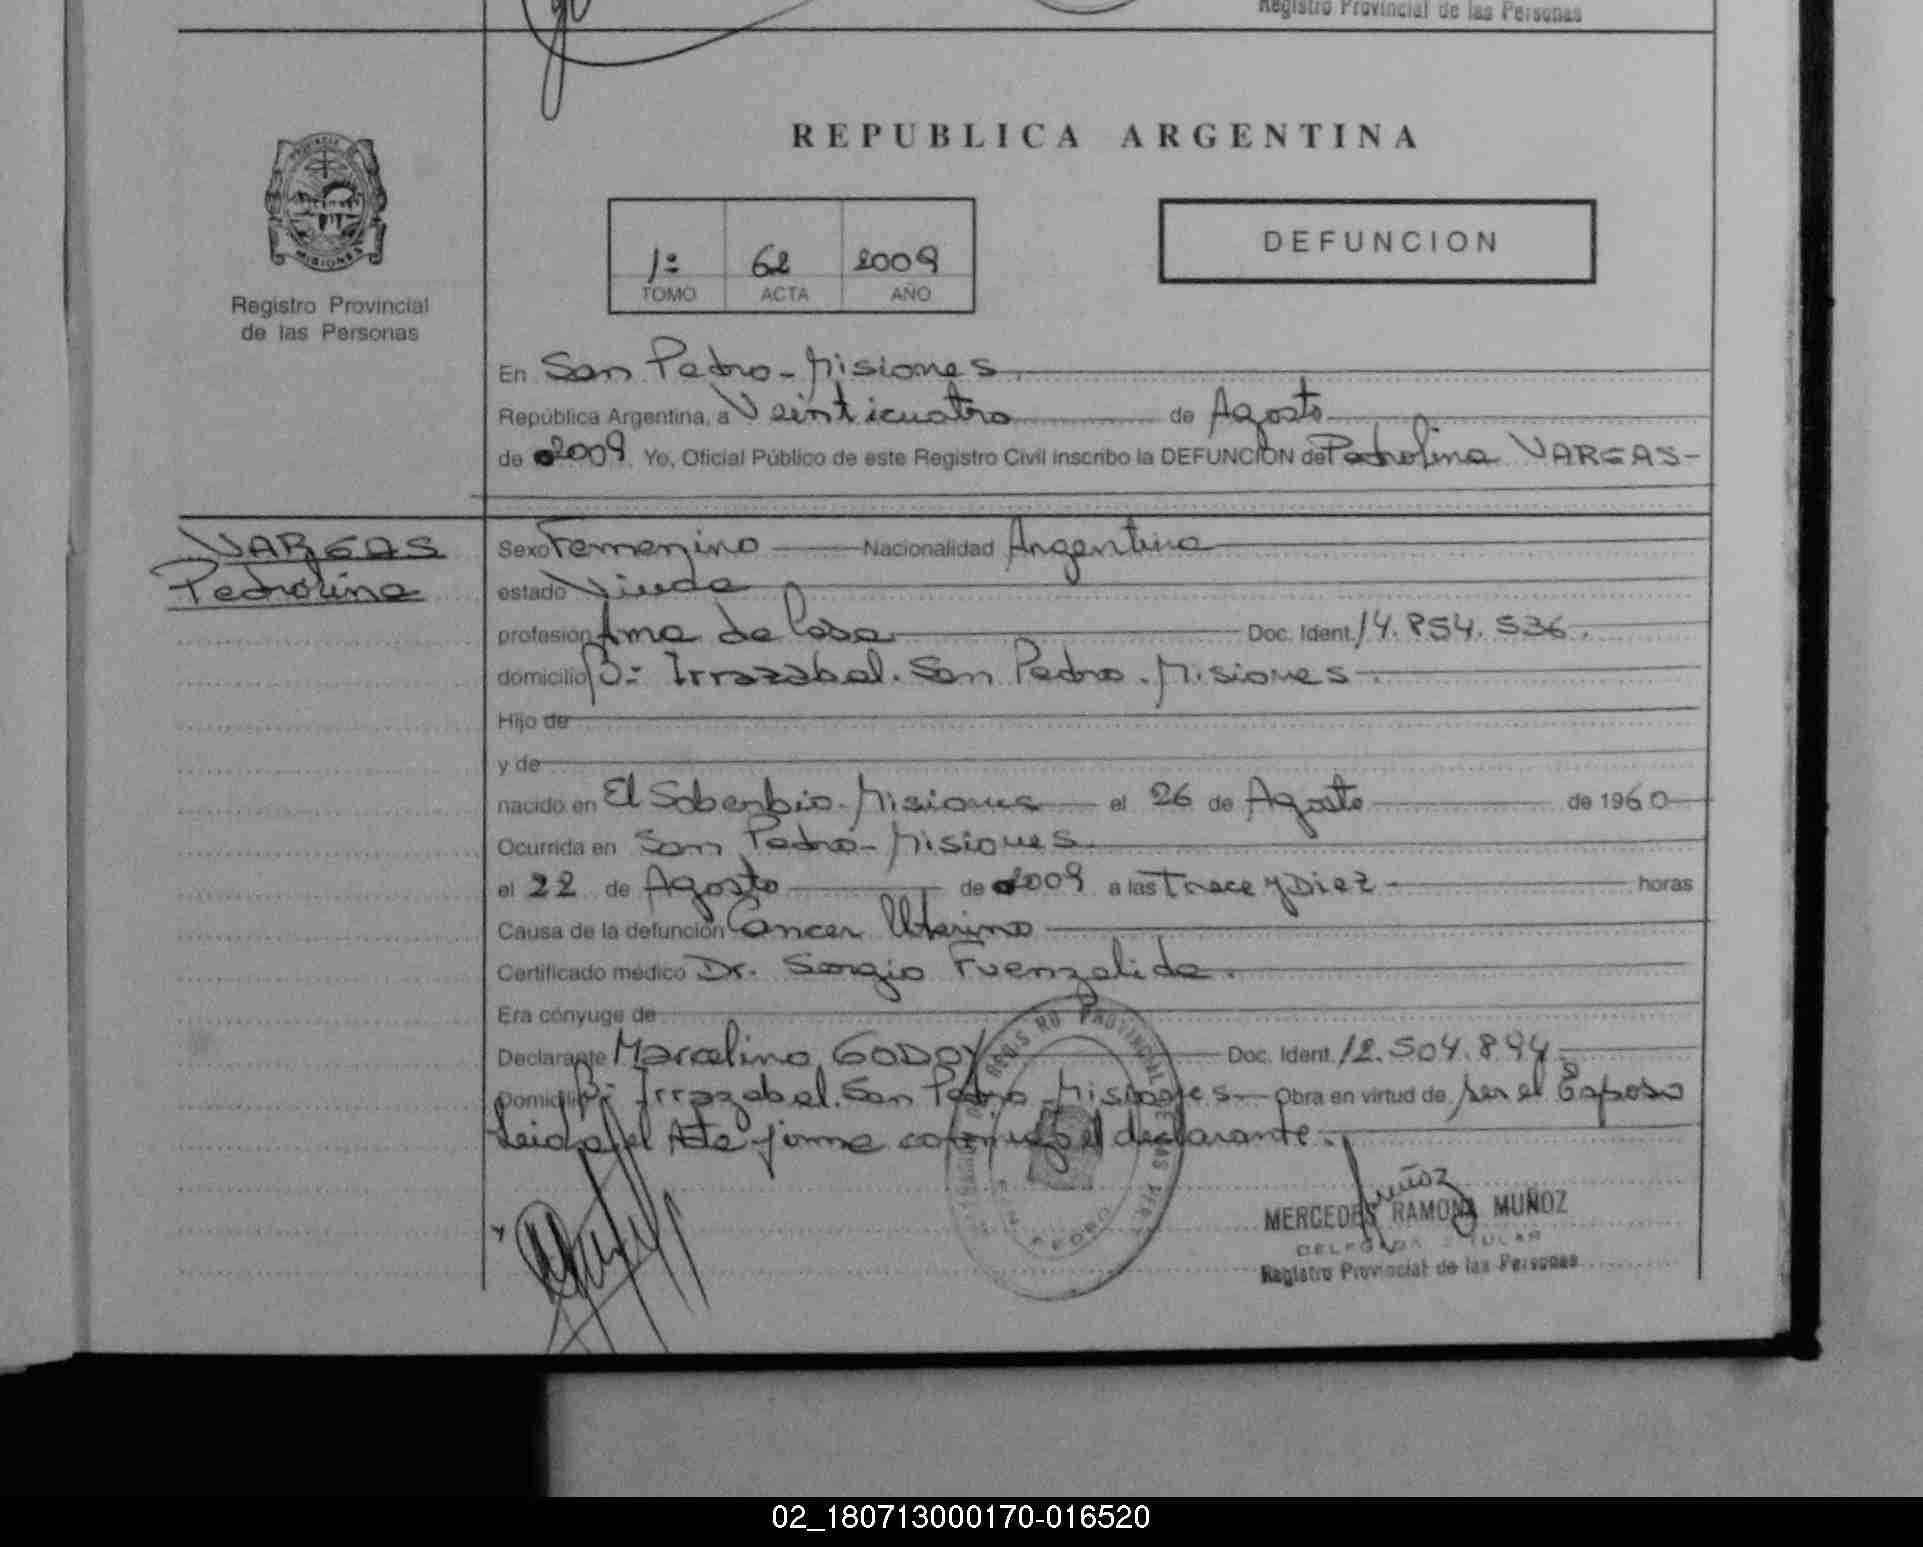 Registro Provincial de las Personas
REPUBLICA ARGENTINA
1º 62 2009
TOMO ACTA AÑO
DEFUNCION
PROVINCIA DE
MISIONES
Registro Provincial
de las Personas
En San Pedro - Misiones.
República Argentina, a Veinticuatro de Agosto
de 2009. Yo, Oficial Público de este Registro Civil inscribo la DEFUNCION de Pedrolina VARGAS-
VARGAS
Pedrolina
Sexo Femenino Nacionalidad Argentina
estado Viuda
profesión Ama de Casa Doc. Ident. 14.854.536.
domicilio Bº Irrazabal. San Pedro. Misiones
Hijo de
y de
nacido en El Soberbio. Misiones el 26 de Agosto de 1960
Ocurrida en San Pedro - Misiones.
el 22 de Agosto de 2009 a las Trece y Diez horas
Causa de la defunción Cancer Uterino
Certificado médico Dr. Sergio Fuenzalida.
Era cónyuge de
Declarante Marcelino GODOY Doc. Ident. 12.504.894.
Domicilio Bº Irrazabal. San Pedro - Misiones Obra en virtud de ser el Esposo
Leida el Acta firma conmigo el declarante.
Muñoz
MERCEDES RAMONA MUÑOZ
DELEGADA TITULAR
Registro Provincial de las Personas
02_180713000170-016520